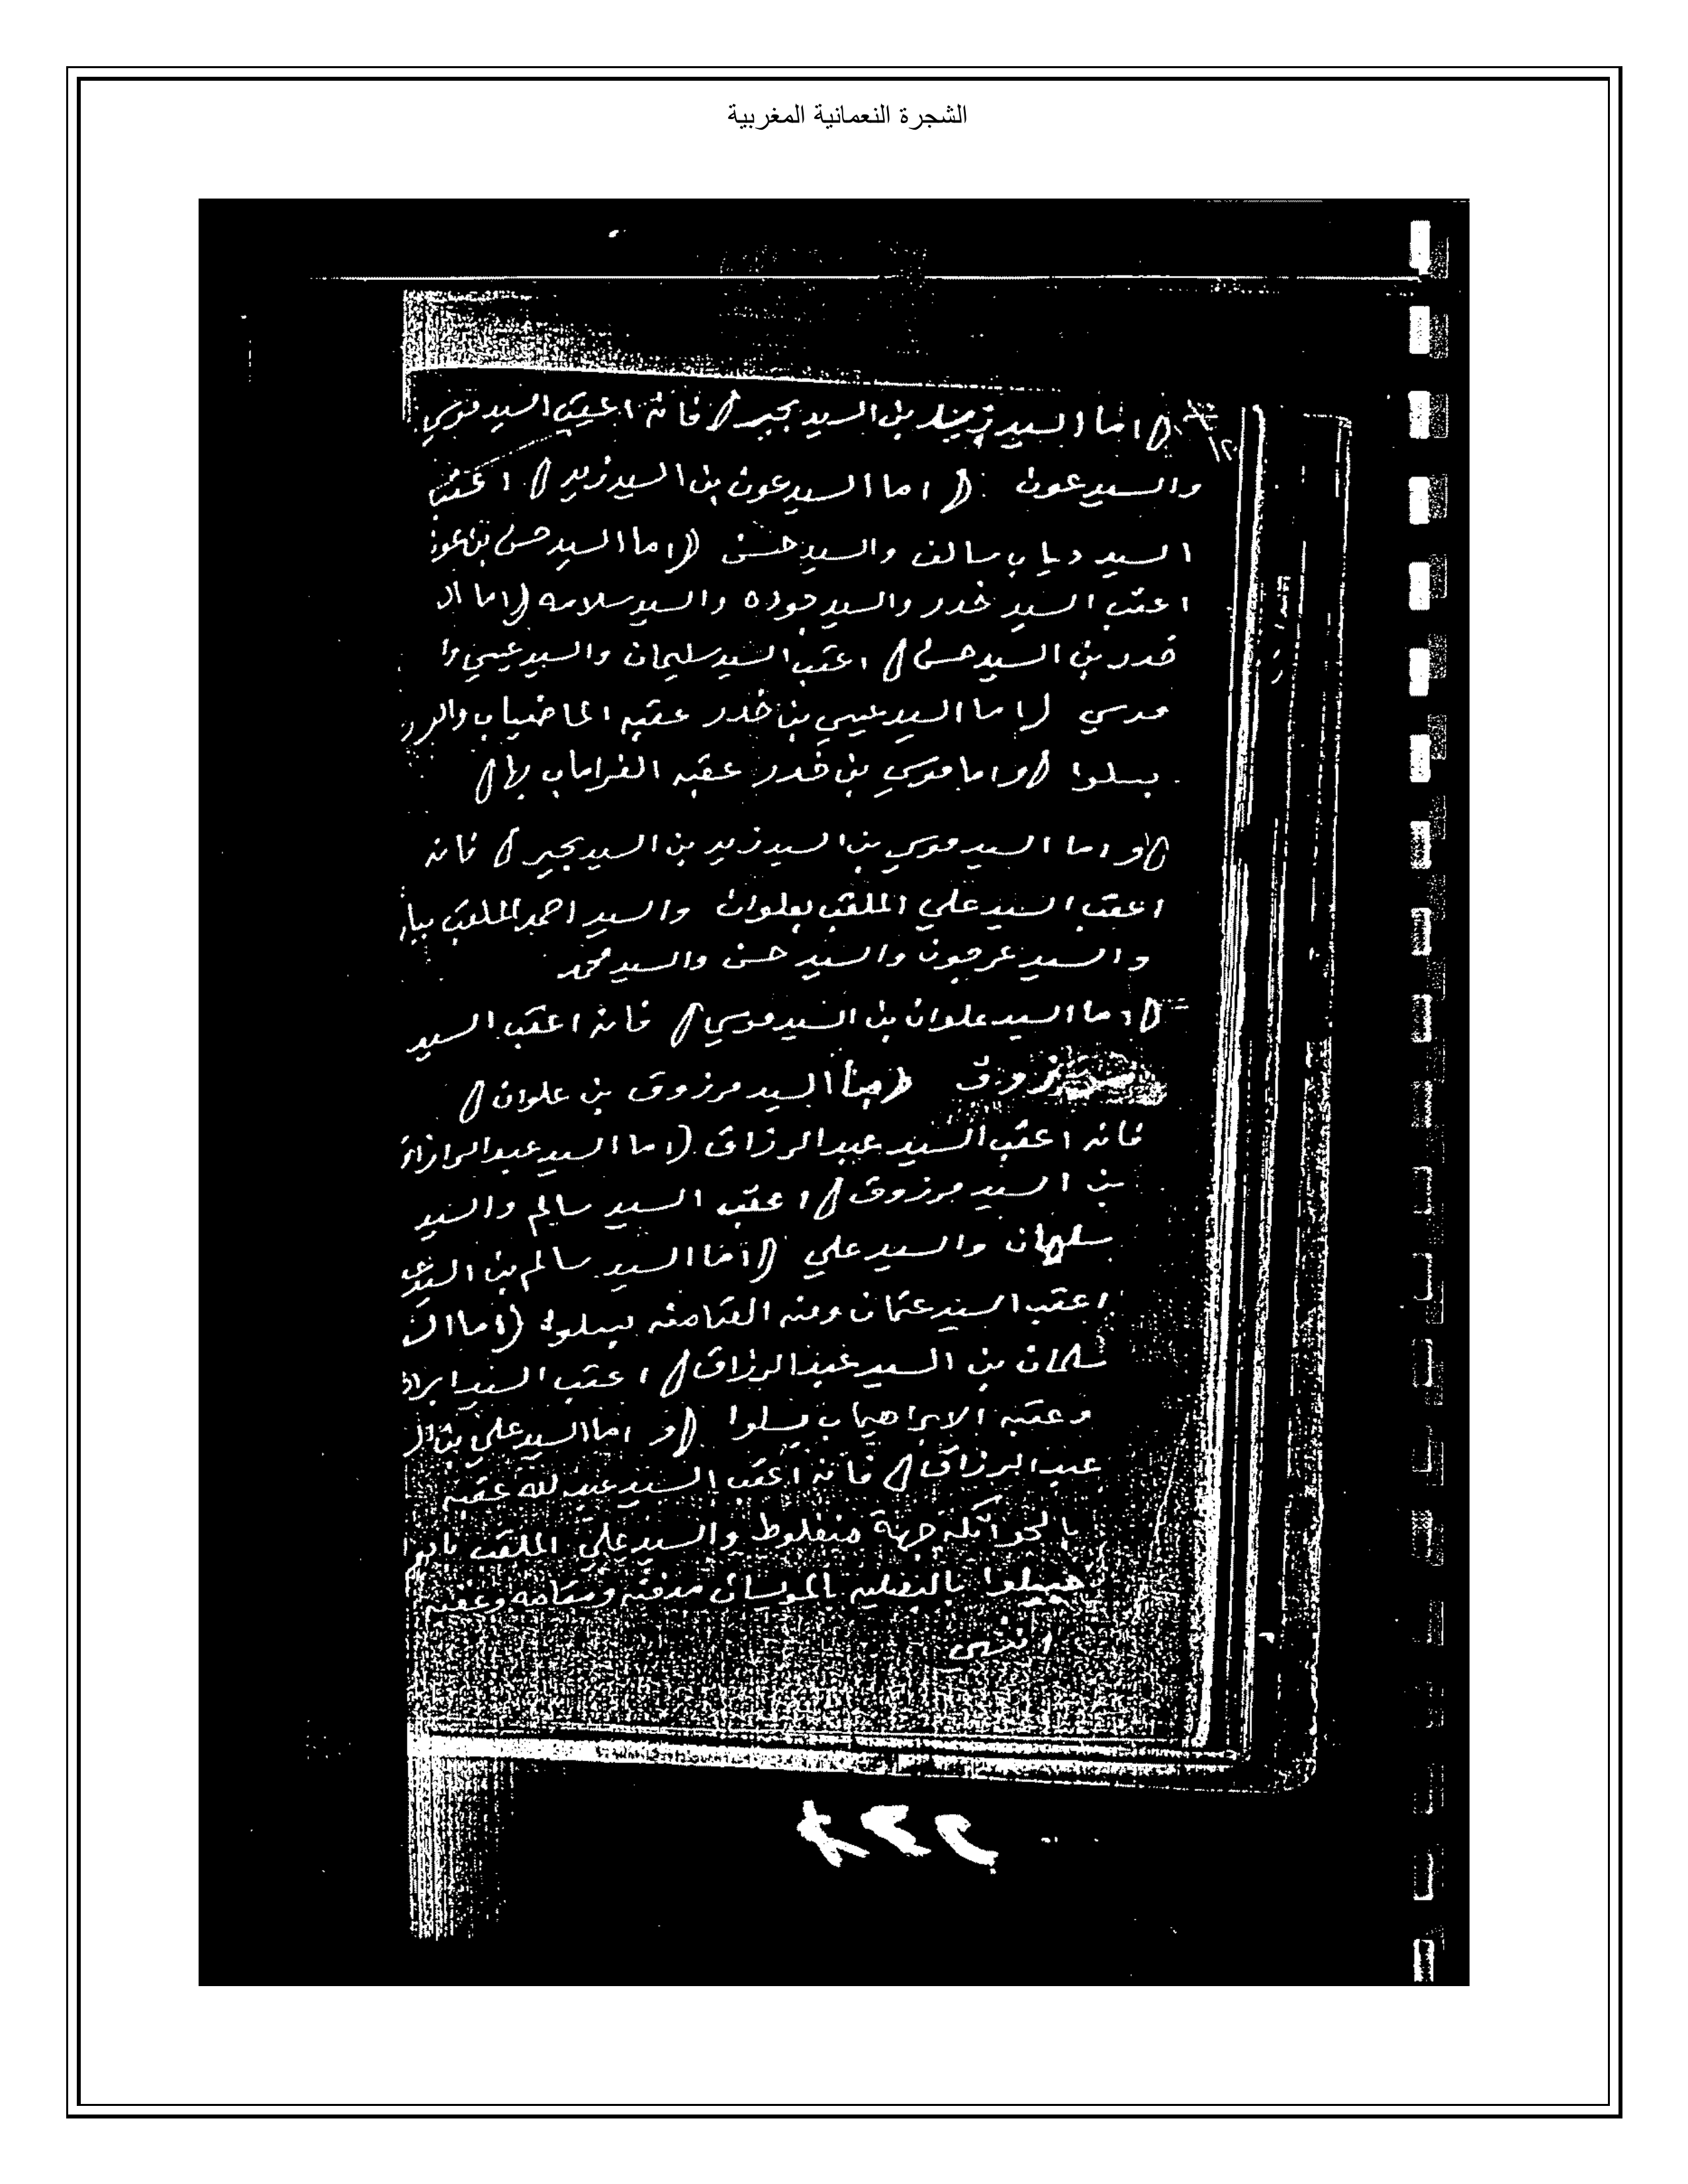 الشجرة النعمانية المغربية
اما السيد زيد بن السيد بجير فانه اعقب السيد موسي
والسيد عون اما السيد عون بن السيد زيد اعقب
السيد دياب سالف والسيد حسن اما السيد حسن بن عون
اعقب السيد خدر والسيد جوده والسيد سلامه اما ال
خدر بن السيد حسن اعقب السيد سليمان والسيد عيسي وا
موسي اما السيد عيسي بن خدر عقبه الماضياب
ببلوا واما موسي بن خدر عقبه الفراماب بها
واما السيد موسي بن السيد زيد بن السيد بجير فانه
اعقب السيد علي الملقب بعلوان والسيد احمد الملقب
والسيد عرجون والسيد حسن والسيد محمد
اما السيد علوان بن السيد موسي فانه اعقب السيد
مرزوق السيد مرزوق بن علوان
فانه اعقب السيد عبد الرزاق اما السيد عبد الرازاق
بن السيد مرزوق اعقب السيد سالم والسيد
سلمان والسيد علي اما السيد سالم بن السيد
اعقب السيد عثمان ومنه العثامنه ببلوا اما ال
سلمان بن السيد عبد الرزاق اعقب السيد ابراه
وعقبه الابراهياب ببلوا و اما السيد علي بن ال
عبد الرزاق فانه اعقب السيد عبد لله عقبه
بالحواتكه جهة منفلوط والسيد علي الملقب
بالبصليه مدفنه ومقامه وعقبه
انتهى